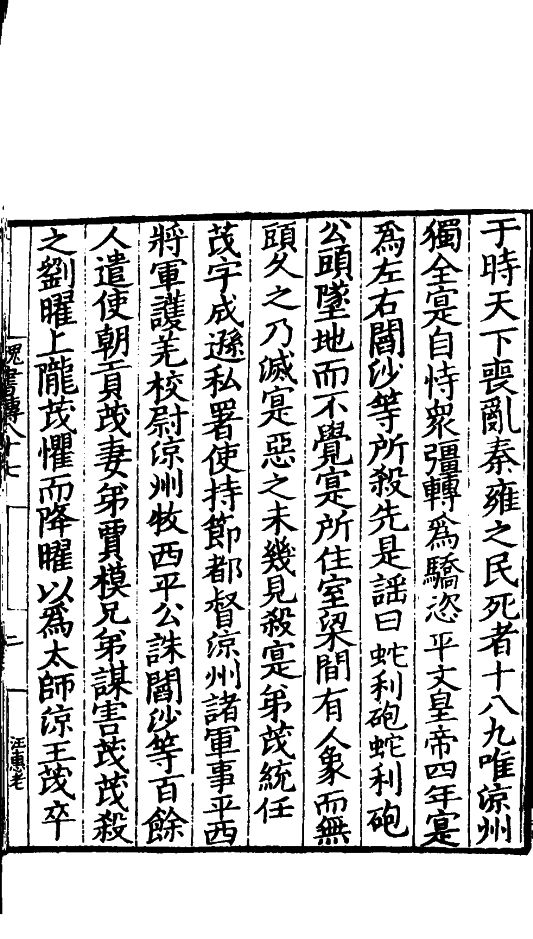 于時天下喪亂秦雍之民死者十八九唯涼州
獨全寔自恃衆彊轉爲驕恣平文皇帝四年寔
爲左右閻沙等所殺先是謡曰蛇利砲蛇利砲
公頭墜地而不覺寔所住室梁間有人象而無
頭久之乃滅寔惡之未幾見殺寔弟茂統任
茂字成遜私署使持節都督涼州諸軍事平西
將軍護羌校尉涼州牧西平公誅閻沙等百餘
人遣使朝貢茂妻弟賈模兄弟謀害茂茂殺
之劉曜上隴茂懼而降曜以爲太師涼王茂卒
魏書傳八十七
二
汪惠老